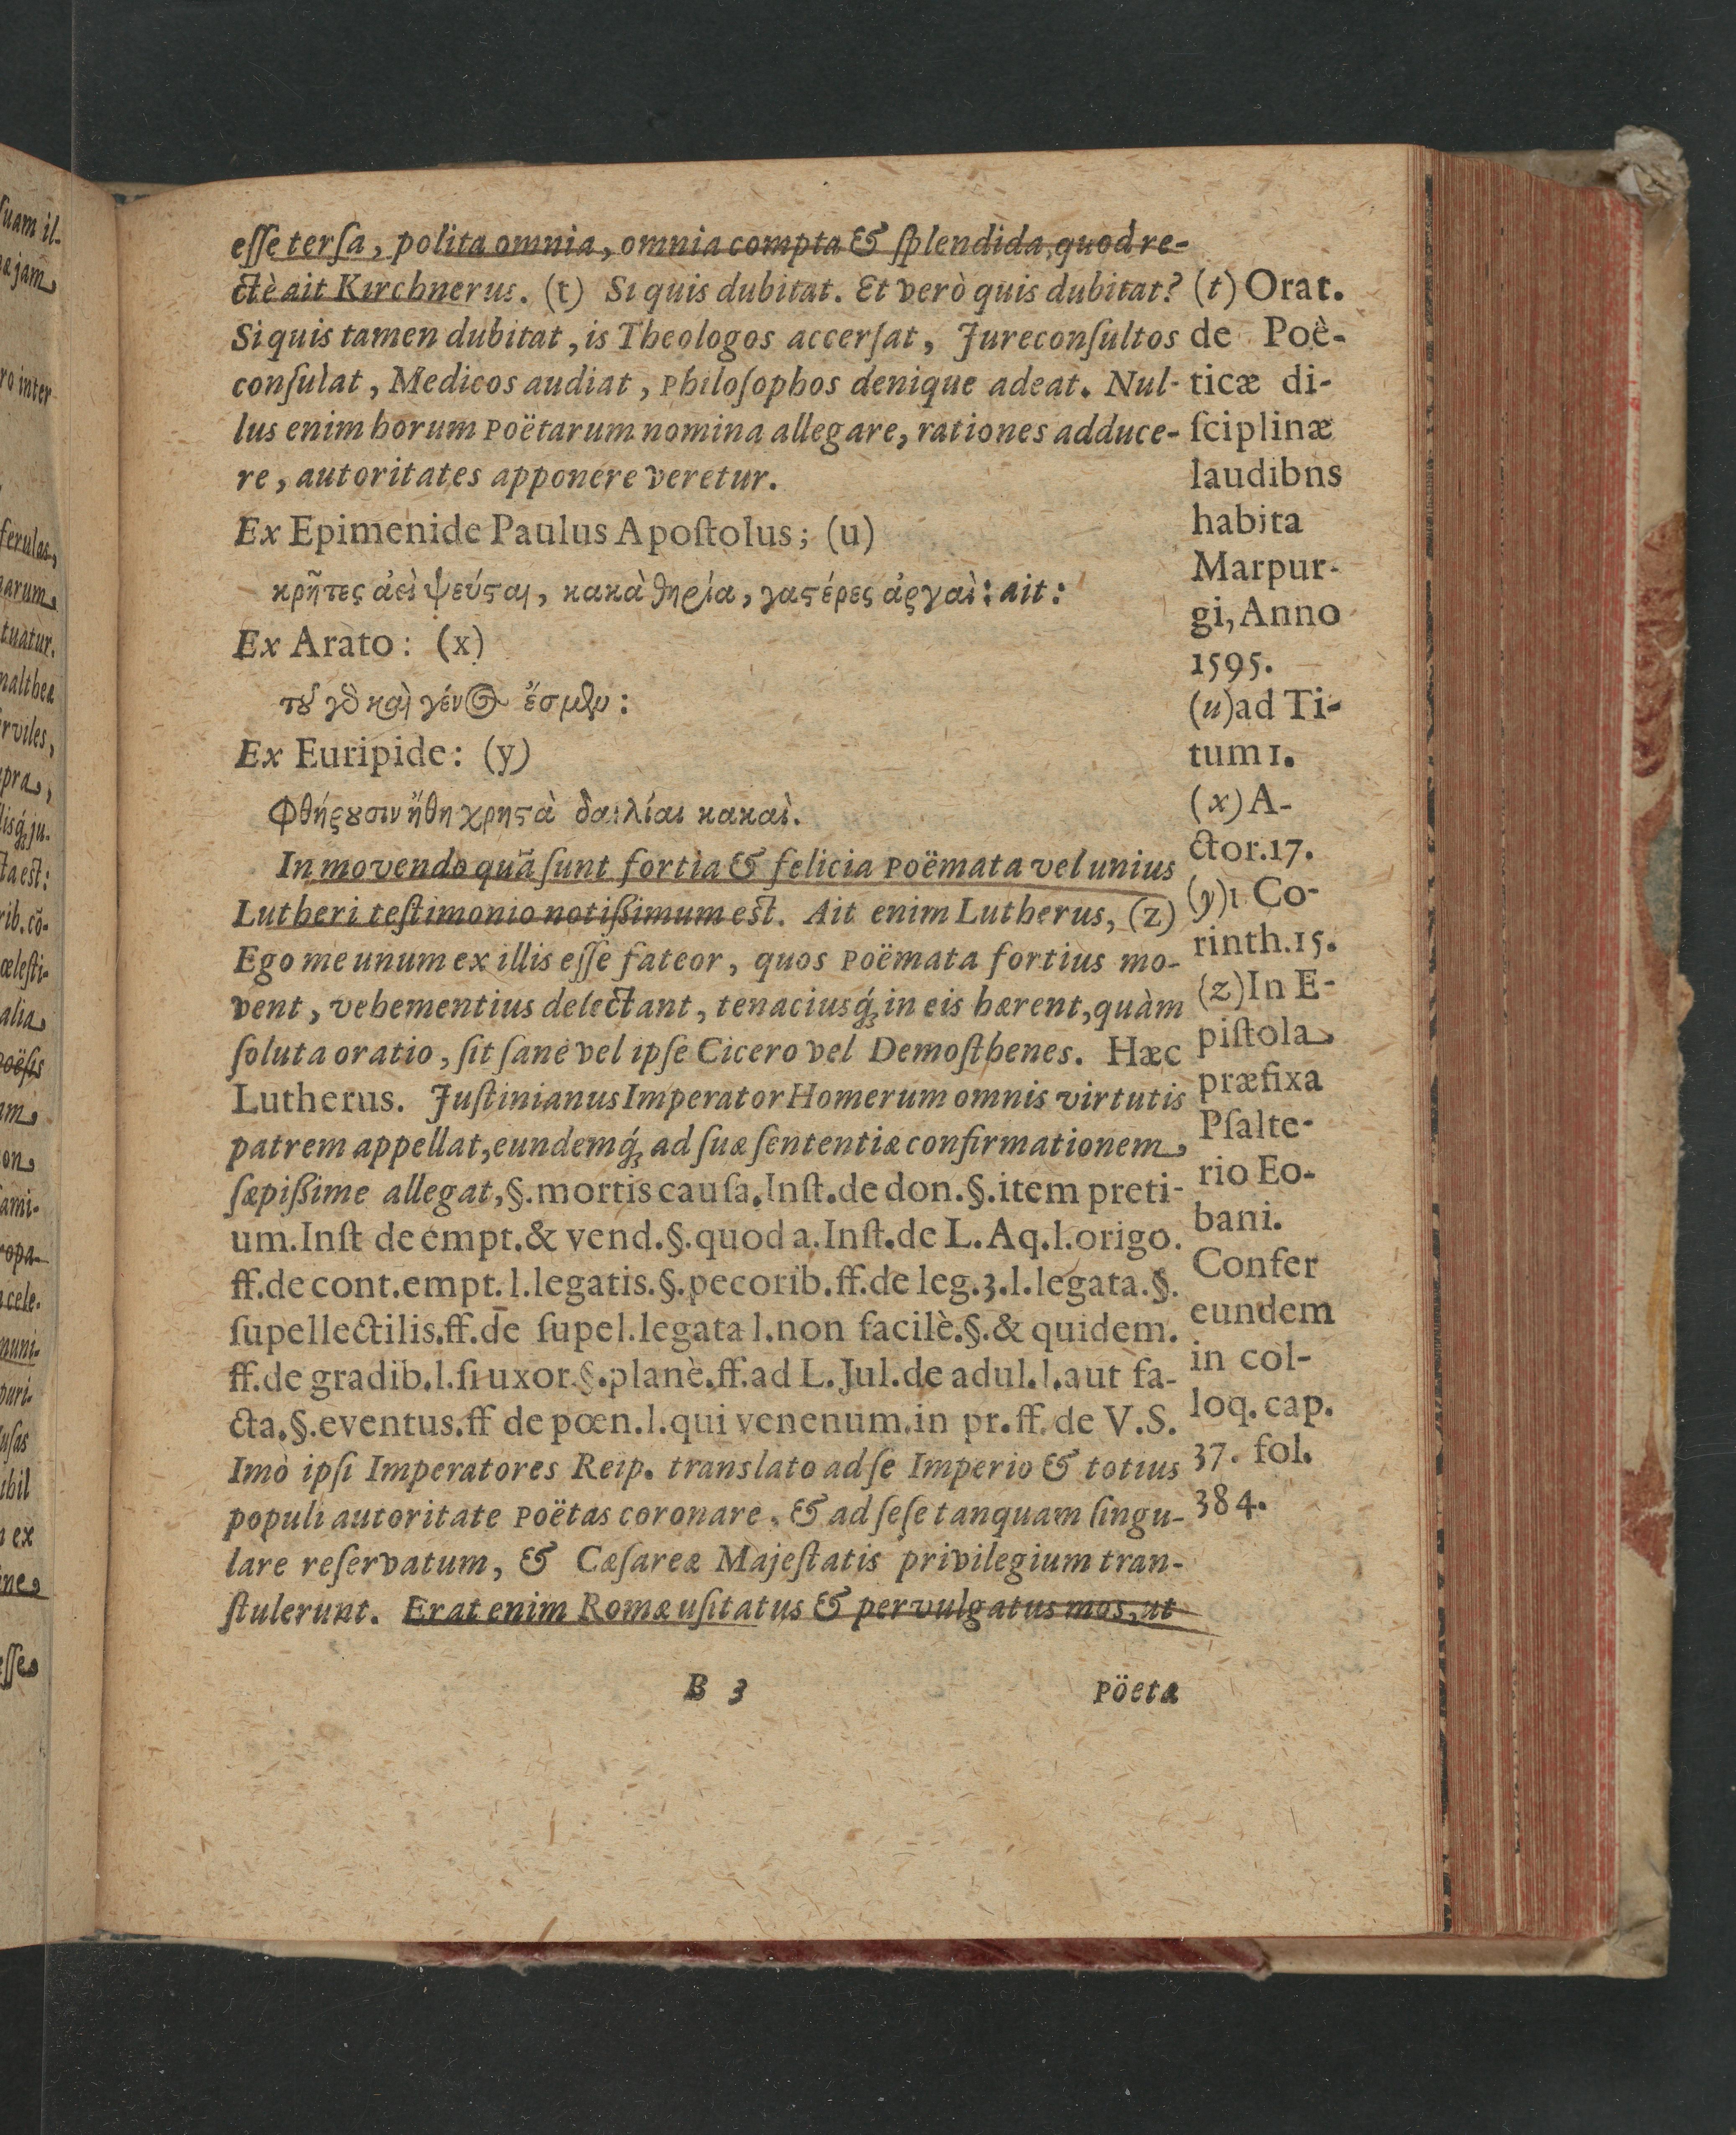 esse tersa, polita omnia, omnia compta & splendida, quod re-
ctè ait Kirchnerus. (t) Si quis dubitat. Et verò quis dubitat?
Si quis tamen dubitat, is Theologos accersat, Jureconsultos
consulat, Medicos audiat, Philosophos denique adeat. Nul-
lus enim horum Poëtarum nomina allegare, rationes adduce-
re, autoritates apponere veretur.
Ex Epimenide Paulus Apostolus; (u)
κρῆτες ἀεὶ ψεύσται, κακὰ θηρία, γαστέρες ἀργαὶ: ait:
Ex Arato: (x)
τοῦ γὸ καὶ γένος ἔσμεν:
Ex Euripide: (y)
Φθήρουσιν ἤθη χρηστὰ ὁμιλίαι κακαὶ.
In movendo quā sunt fortia & felicia Poëmata vel unius
Lutheri testimonio notißimum est. Ait enim Lutherus, (z)
Ego me unum ex illis esse fateor, quos Poëmata fortius mo-
vent, vehementius delectant, tenaciusq́; in eis hærent, quàm
soluta oratio, sit sane vel ipse Cicero vel Demosthenes. Hæc
Lutherus. Justinianus Imperator Homerum omnis virtutis
patrem appellat, eundemq́; ad suæ sententiæ confirmationem
sæpißime allegat, §. mortis causa. Inst. de don. §. item preti-
um. Inst de empt. & vend. §. quod a. Inst. de L. Aq. l. origo.
ff. de cont. empt. l. legatis. §. pecorib. ff. de leg. 3. l. legata. §.
supellectilis. ff. de supel. legata l. non facilè. §. & quidem.
ff. de gradib. l. si uxor. §. planè. ff. ad L. Jul. de adul. l. aut fa-
cta. §. eventus. ff de pœn. l. qui venenum. in pr. ff. de V. S.
Imò ipsi Imperatores Reip. translato ad se Imperio & totius
populi autoritate Poëtas coronare, & ad sese tanquam singu-
lare reservatum, & Cæsareæ Majestatis privilegium tran-
stulerunt. Erat enim Romæ usitatus & pervulgatus mos, ut
B 3
Pöetæ
(t) Orat.
de Poè-
ticæ di-
sciplinæ
laudibns
habita
Marpur-
gi, Anno
1595.
(u) ad Ti-
tum 1.
(x) A-
ctor. 17.
(y) 1 Co-
rinth. 15.
(z) In E-
pistola
præfixa
Psalte-
rio Eo-
bani.
Confer
eundem
in col-
loq. cap.
37. fol.
384.